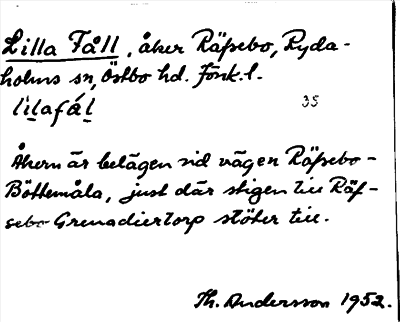 Lilla Fåll, åker Räfsebo, Ryda-
holms sn, Östbo hd. Jönk. l.
lilafál
35
Åkern är belägen vid vägen Räfsebo-
Böttemåla, just där stigen till Räf-
sebo Grenadiertorp stöter till.
Th. Andersson 1952.